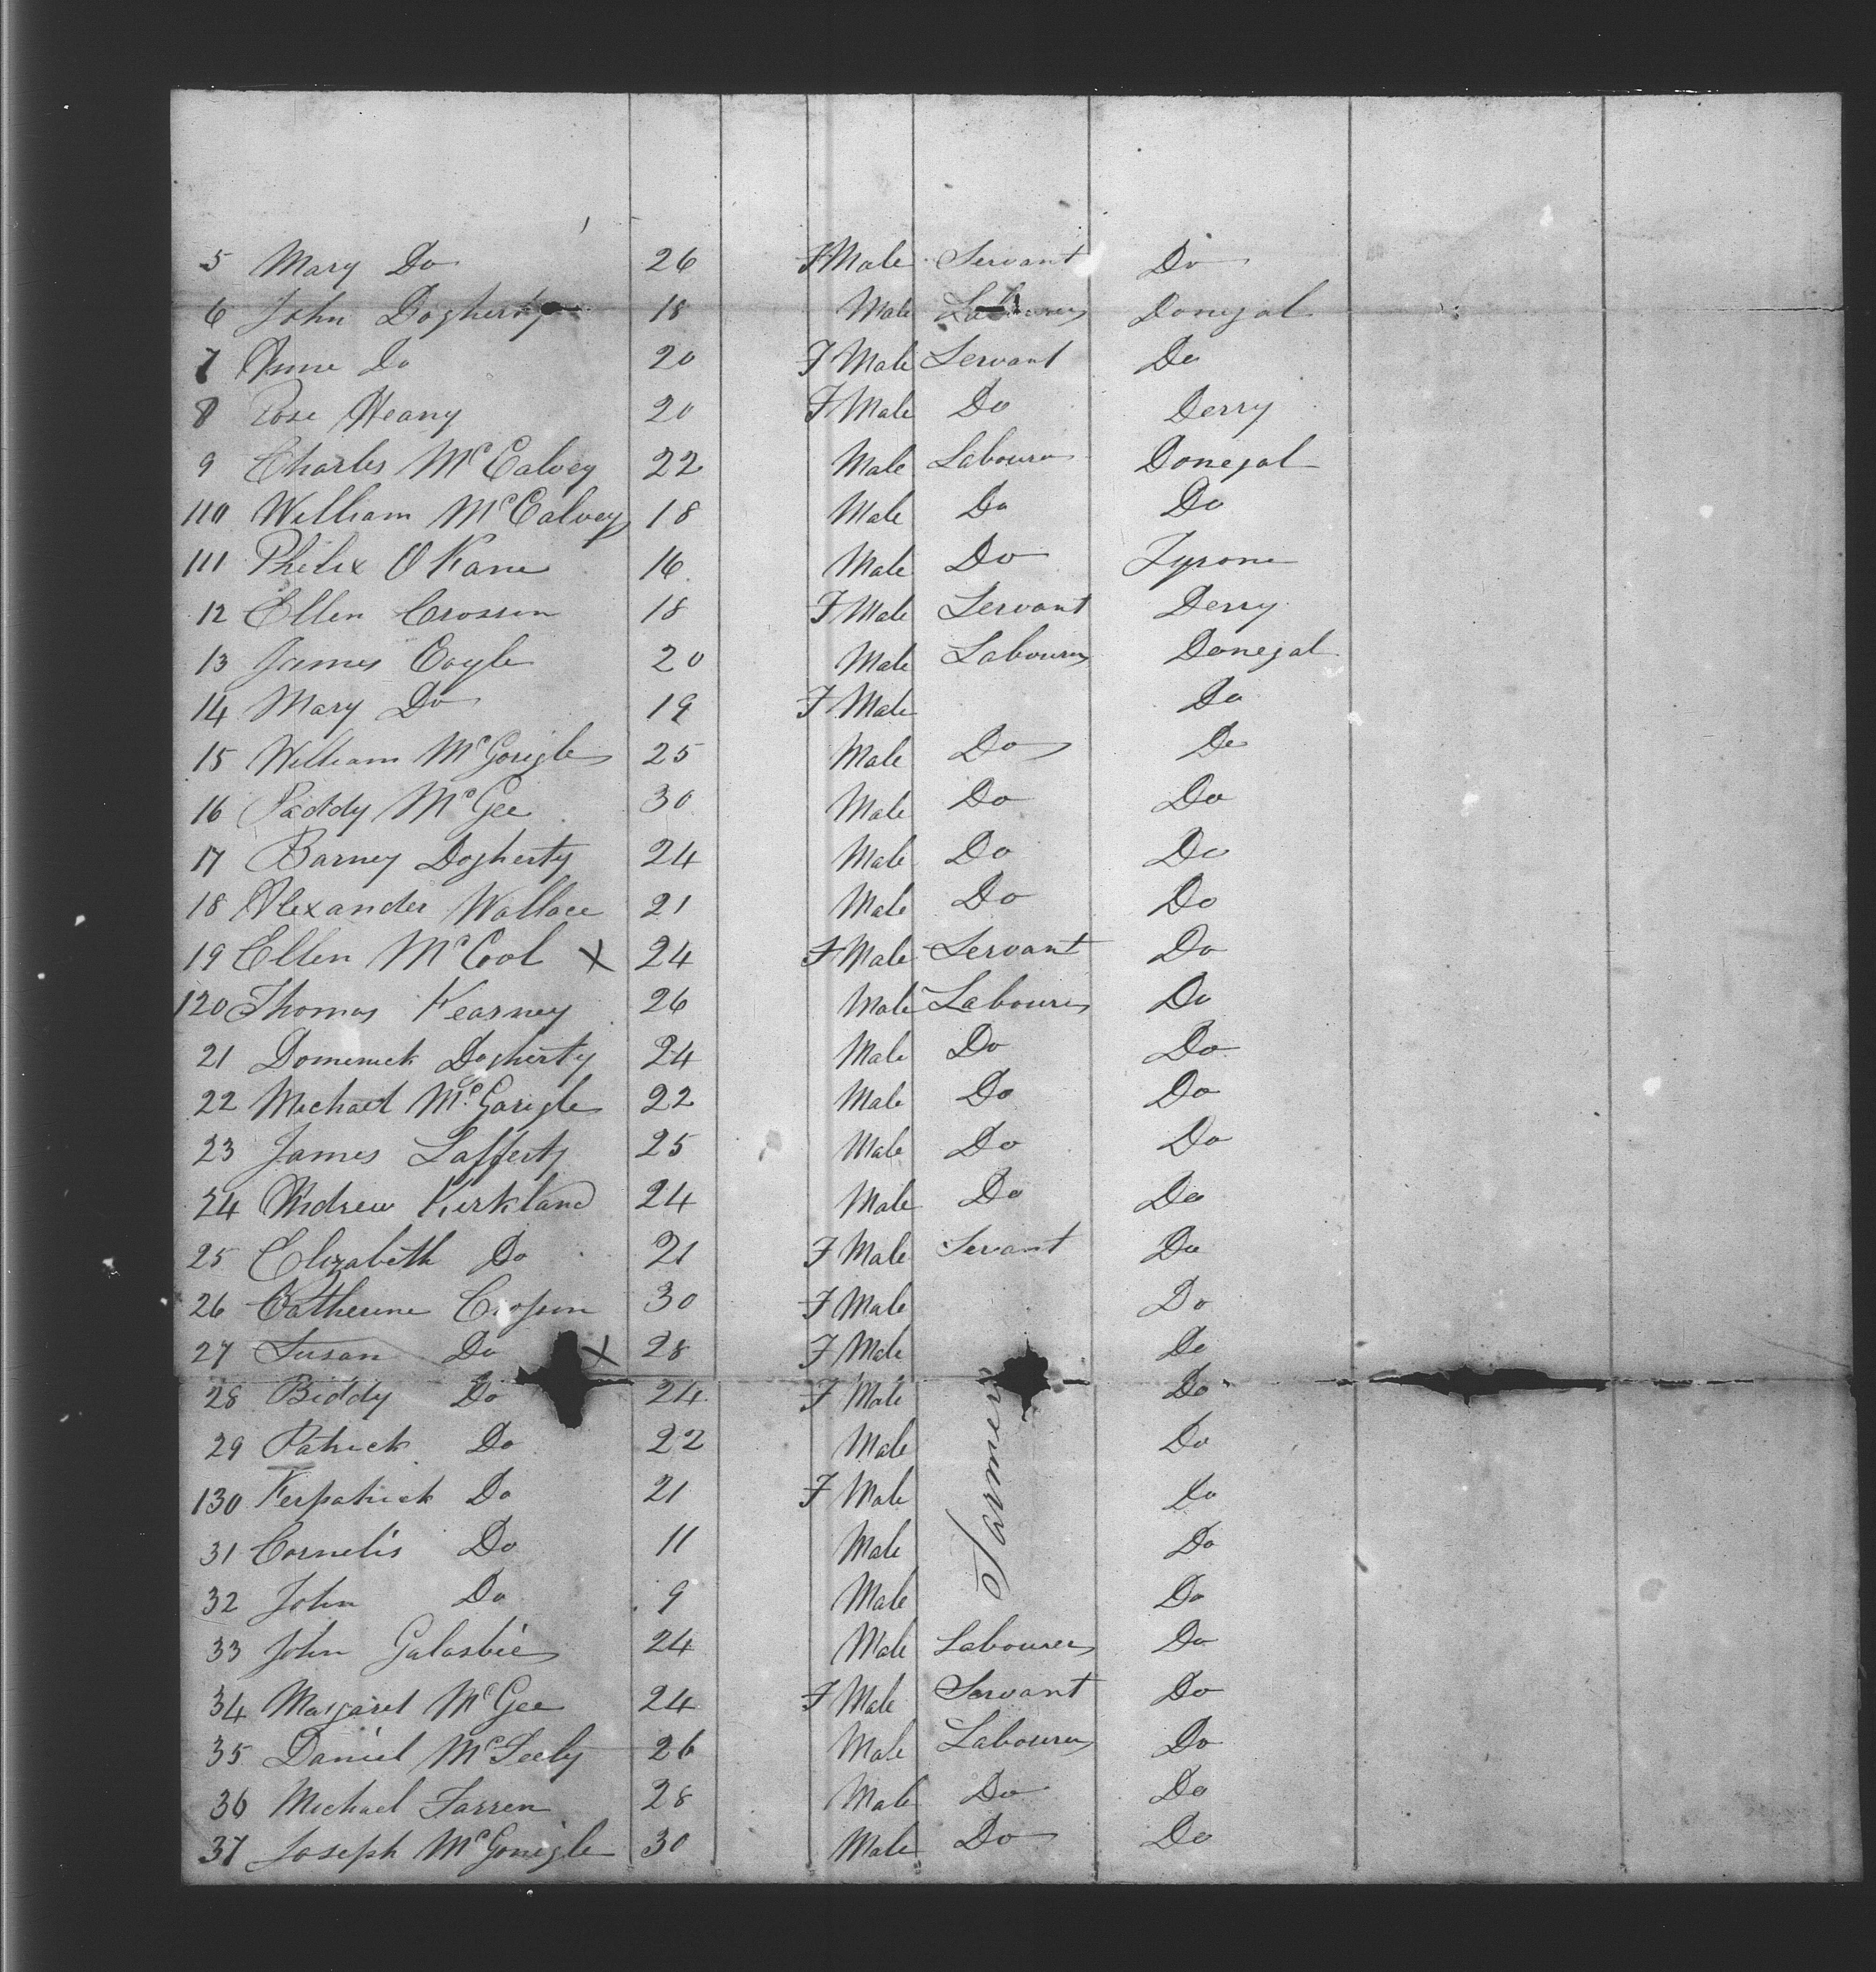 5 Mary Do 26 F Male Servant Do
6 John Dogherty 18 Male Labourer Donegal
7 Anne Do 20 F Male Servant Do
8 Rose Heany 20 F Male Do Derry
9 Charles McCalvey 22 Male Labourer Donegal
110 William McCalvey 18 Male Do Do
111 Philix O Kane 16 Male Do Tyrone
12 Ellen Crossen 18 F Male Servant Derry
13 James Coyle 20 Male Labourer Donegal
14 Mary Do 19 F Male Do
15 William McGonigle 25 Male Do Do
16 Paddy McGee 30 Male Do Do
17 Barney Dogherty 24 Male Do Do
18 Alexander Wallace 21 Male Do Do
19 Ellen McCool X 24 F Male Servant Do
120 Thomas Kearney 26 Male Labourer Do
21 Domenick Dogherty 24 Male Do Do
22 Michael McGonigle 22 Male Do Do
23 James Lafferty 25 Male Do Do
24 Andrew Kirkland 24 Male Do Do
25 Elizabeth Do 21 F Male Servant Do
26 Catherine Crossen 30 F Male Do
27 Susan Do X 28 F Male Do
28 Biddy Do 24 F Male Do
29 Patrick Do 22 Male Do
130 Do 21 F Male Do
31 Cornelis Do 11 Male Do
32 John Do 9 Male Do
Farmers
33 John Galasbie 24 Male Labourer Do
34 Margaret McGee 24 F Male Servant Do
35 Daniel McFeely 26 Male Labourer Do
36 Michael Farren 28 Male Do Do
37 Joseph McGonigle 30 Male Do Do